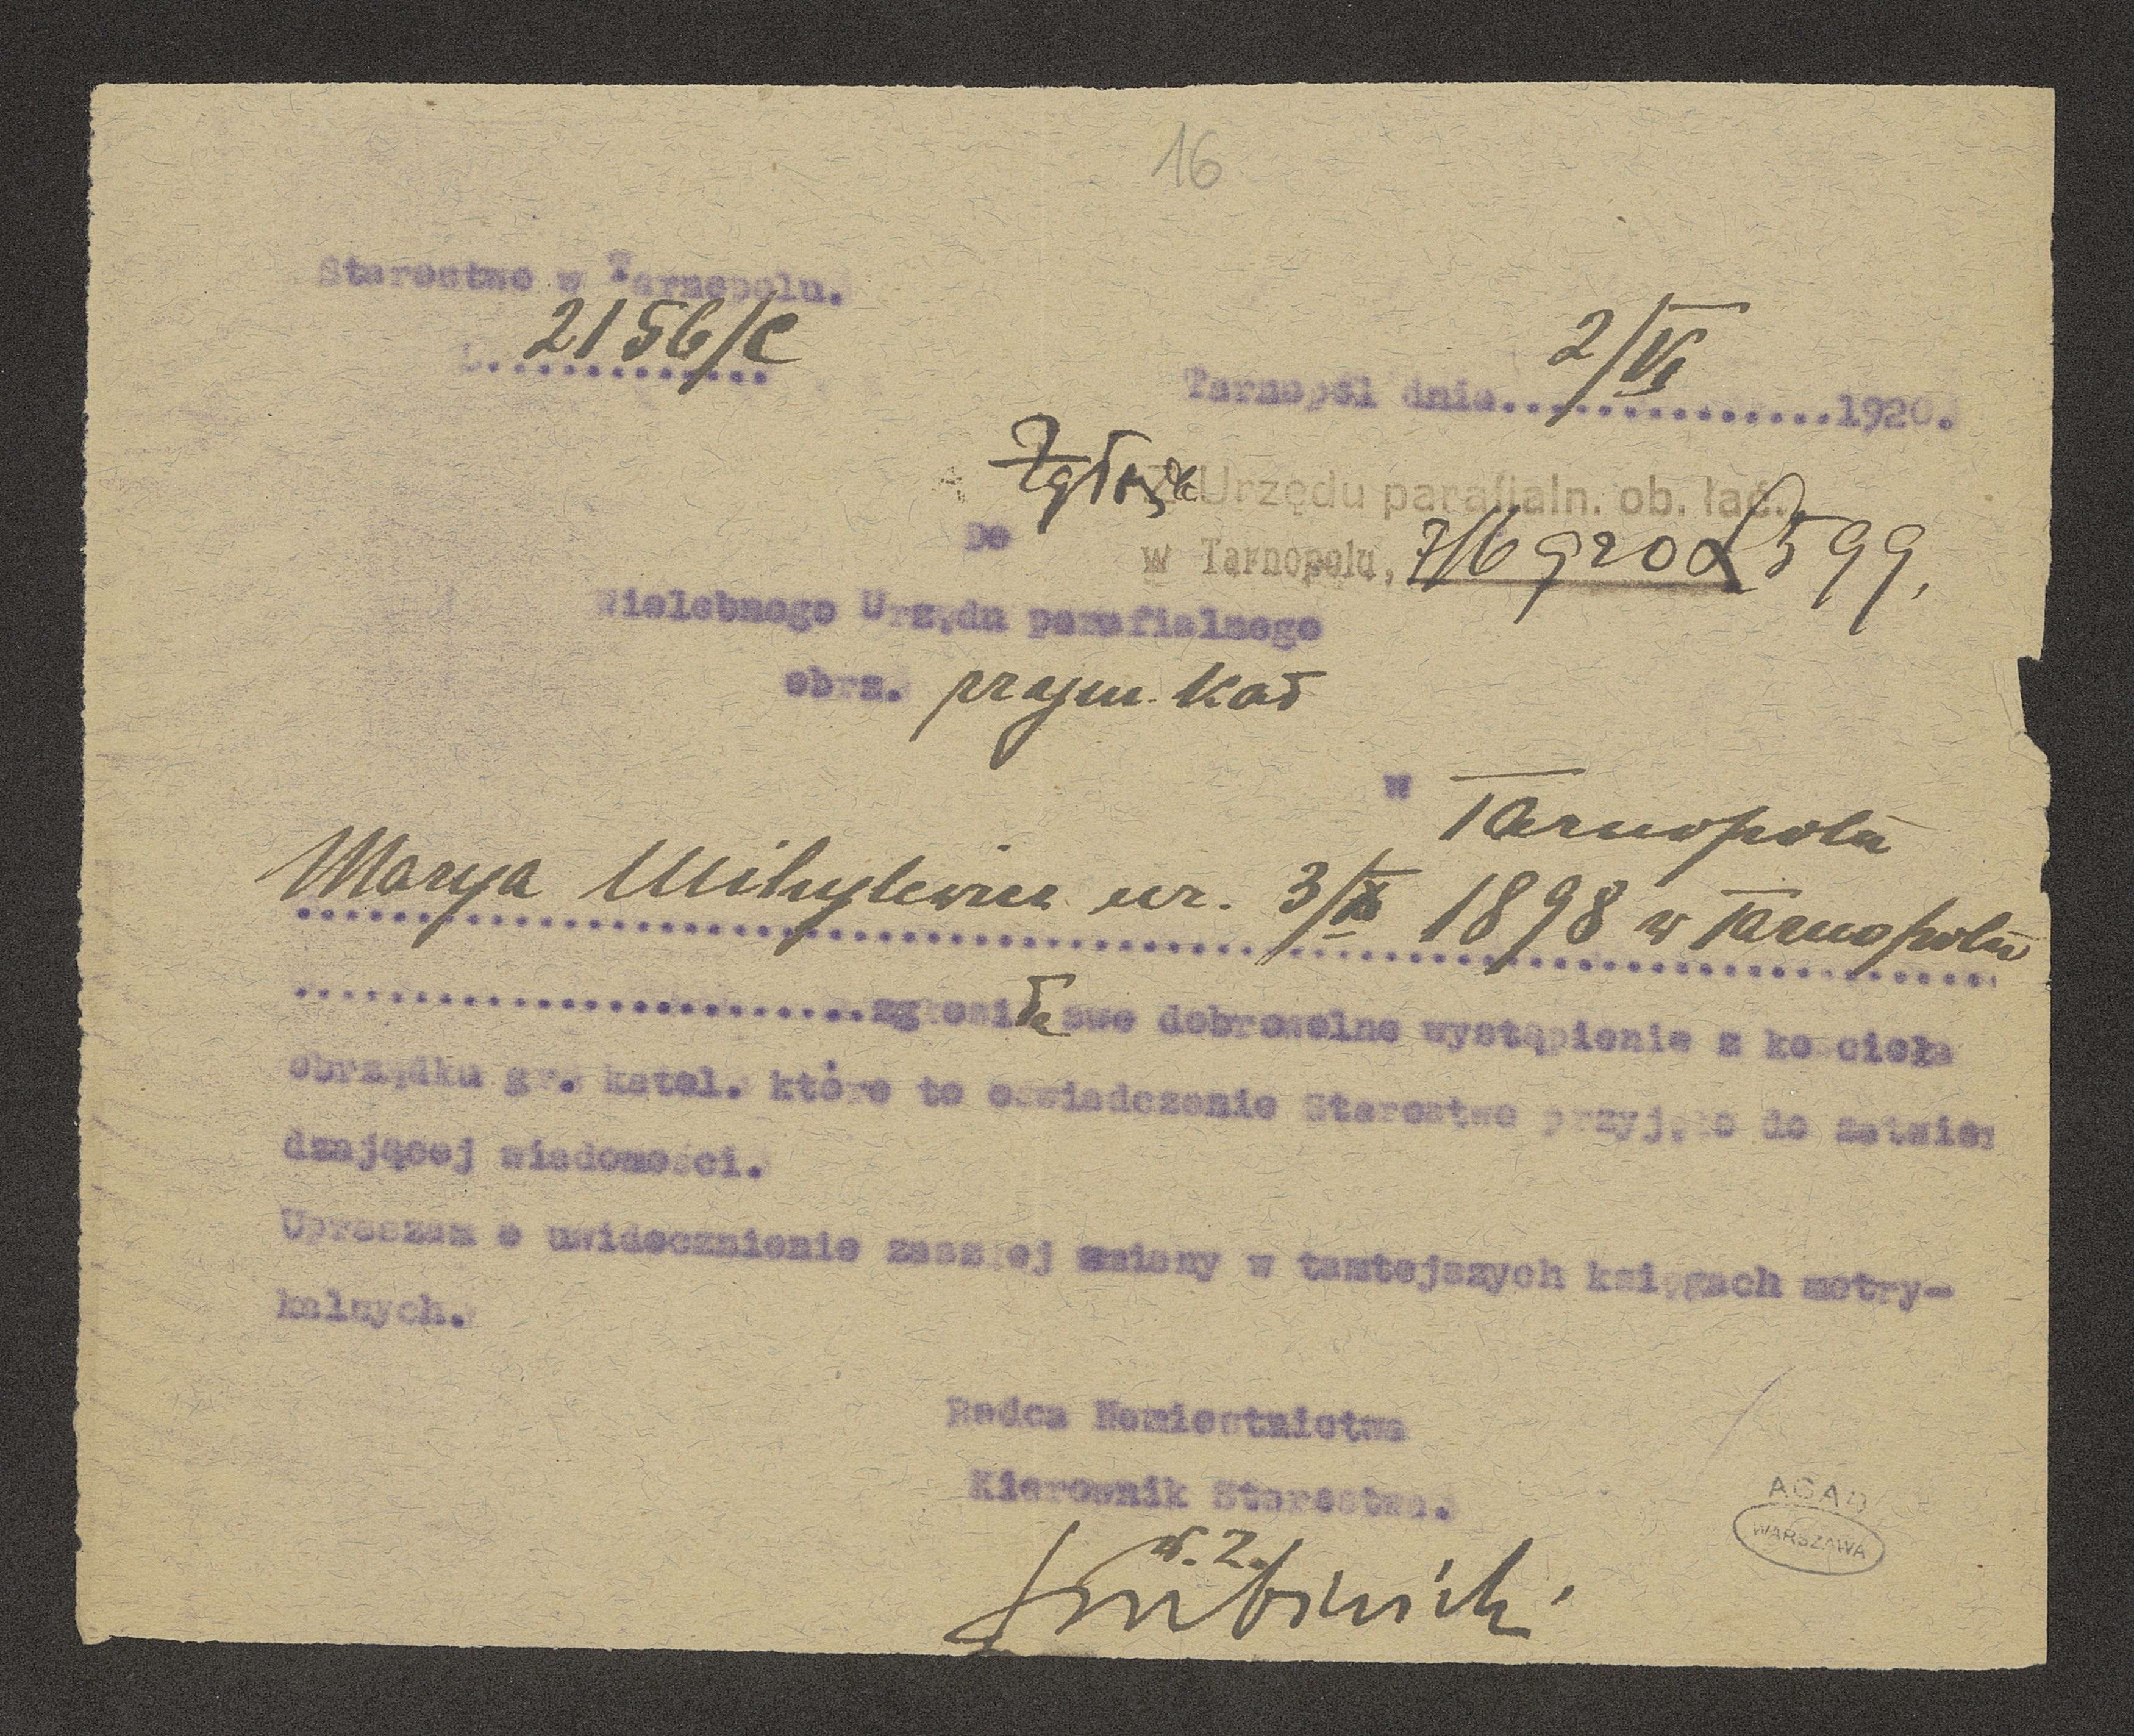 16
Starostwo w Tarnopolu.
L. 2156/c
Tarnopol dnia 2/VI 1920.
Z Urzędu parafialn. ob. łać.
w Tarnopolu, 7/6 920 L 599,
Do
Wielebnego Urzędu parafialnego
obrz. rzym. kat
w Tarnopolu
Marya Mihylewicz ur. 3/X 1898 w Tarnopolu
zgłosiła swe dobrowolne wystąpienie z kościoła
obrządku gr. katol. które to oświadczenie Starostwo przyjęło do zatwier
dzającej wiadomości.
Upraszam o uwidocznienie zaszłej zmiany w tamtejszych księgach metry-
kalnych.
Radca Namiestnictwa
Kierownik Starostwa.
w. z.
AGAD
WARSZAWA